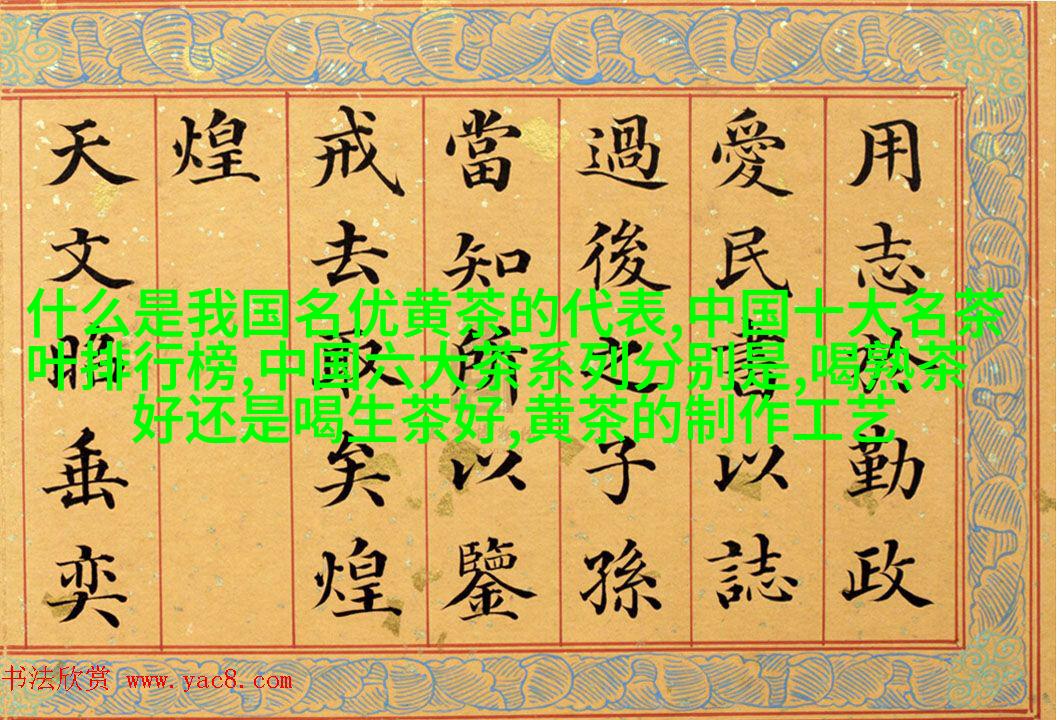 用志於勤政
愛民書以誌
過後之子孫
當知所以鑒
戒去取矣煌
煌
天文昭垂奕
什么是我国名优黄茶的代表,中国十大名茶
叶排行榜,中国六大茶系列分别是,喝熟茶
好还是喝生茶好,黄茶的制作工艺
书法欣赏 www.yac8.com